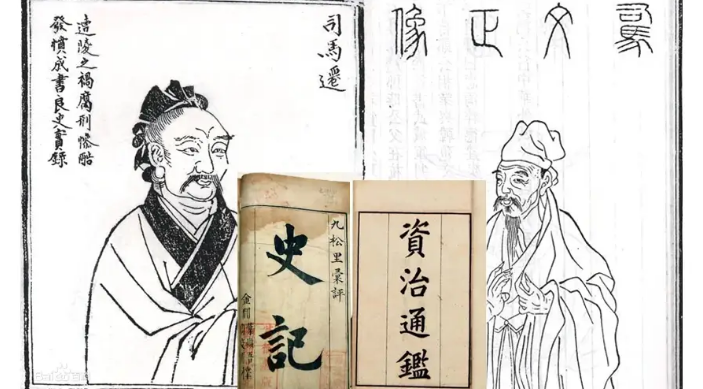 司馬遷
遭陵之禍腐刑慘酷
發憤成書良史實錄
司馬文正像
九松里彙評
史記
資治通鑑